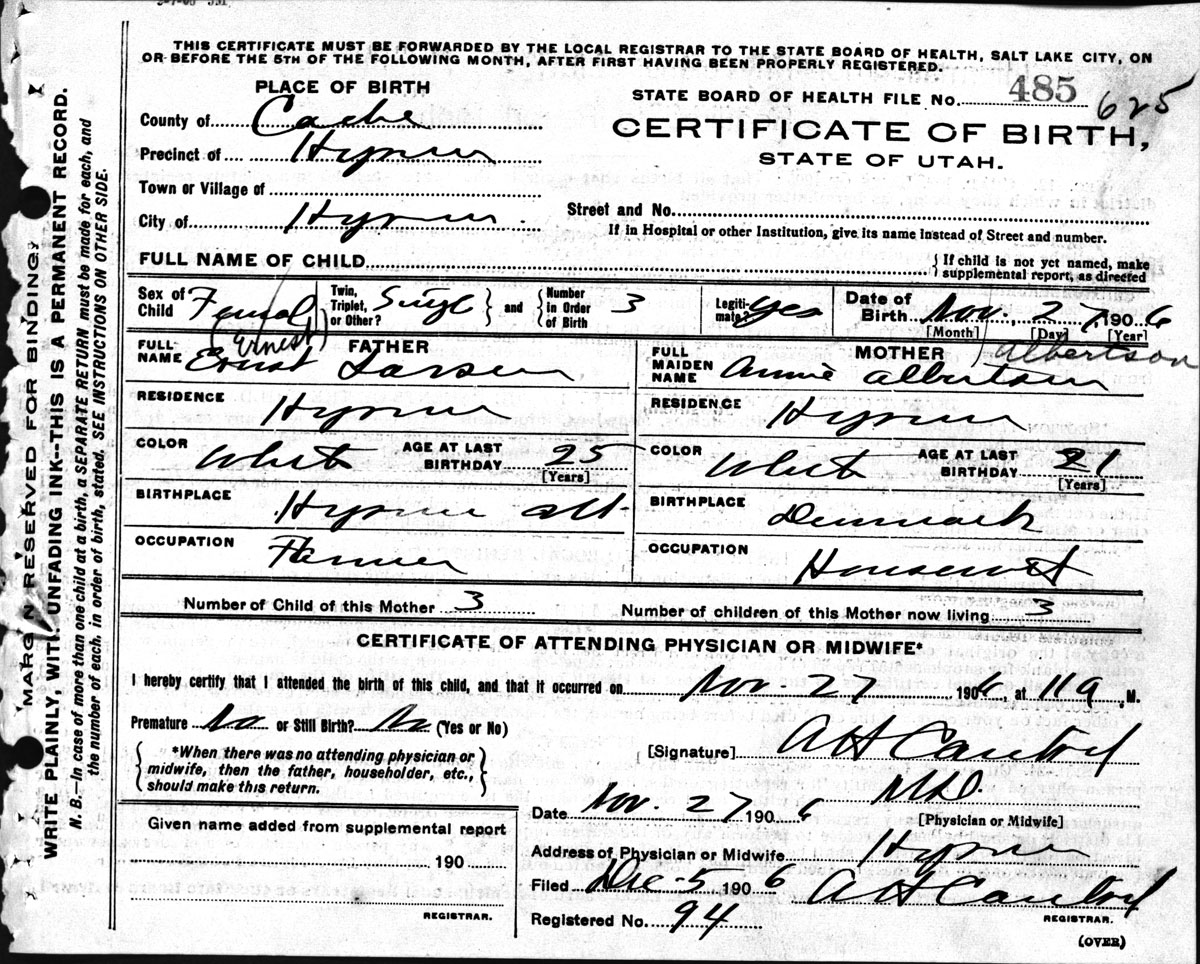 THIS CERTIFICATE MUST BE FORWARDED BY THE LOCAL REGISTRAR TO THE STATE BOARD OF HEALTH, SALT LAKE CITY, ON
OR BEFORE THE 5TH OF THE FOLLOWING MONTH, AFTER FIRST HAVING BEEN PROPERLY REGISTERED.
PLACE OF BIRTH
STATE BOARD OF HEALTH FILE NO. 485 625
County of Cache
CERTIFICATE OF BIRTH,
Precinct of Hyrum
STATE OF UTAH.
Town or Village of
City of Hyrum.
Street and No.
If in Hospital or other Institution, give its name instead of Street and number.
FULL NAME OF CHILD
{ If child is not yet named, make
supplemental report, as directed
Sex of Child Femal
Twin, Triplet, or Other? Singl
and
Number in Order of Birth 3
Legitimate? Yes
Date of Birth Nov. 27, 1906
[Month] [Day] [Year]
FATHER
(Ernest)
FULL NAME Ernst Larsen
RESIDENCE Hyrum
COLOR Whit AGE AT LAST BIRTHDAY 25
[Years]
BIRTHPLACE Hyrum Ut.
OCCUPATION Farmer
MOTHER
Albertson
FULL MAIDEN NAME Annie Albertsen
RESIDENCE Hyrum
COLOR Whit AGE AT LAST BIRTHDAY 21
[Years]
BIRTHPLACE Denmark
OCCUPATION
Number of Child of this Mother 3
Number of children of this Mother now living 3
CERTIFICATE OF ATTENDING PHYSICIAN OR MIDWIFE*
I hereby certify that I attended the birth of this child, and that it occurred on Nov. 27 1906, at 11 a, M.
Premature No or Still Birth? No (Yes or No)
{ *When there was no attending physician or
midwife, then the father, householder, etc.,
should make this return. }
[Signature] A H
MD.
[Physician or Midwife]
Date Nov. 27 1906
Address of Physician or Midwife Hyrum
Filed Dec-5 1906 A H
REGISTRAR.
Registered No. 94
(OVER)
Given name added from supplemental report
190
REGISTRAR.
MARGIN RESERVED FOR BINDING.
WRITE PLAINLY, WITH UNFADING INK--THIS IS A PERMANENT RECORD.
N. B.—In case of more than one child at a birth, a SEPARATE RETURN must be made for each, and
the number of each, in order of birth, stated. SEE INSTRUCTIONS ON OTHER SIDE.